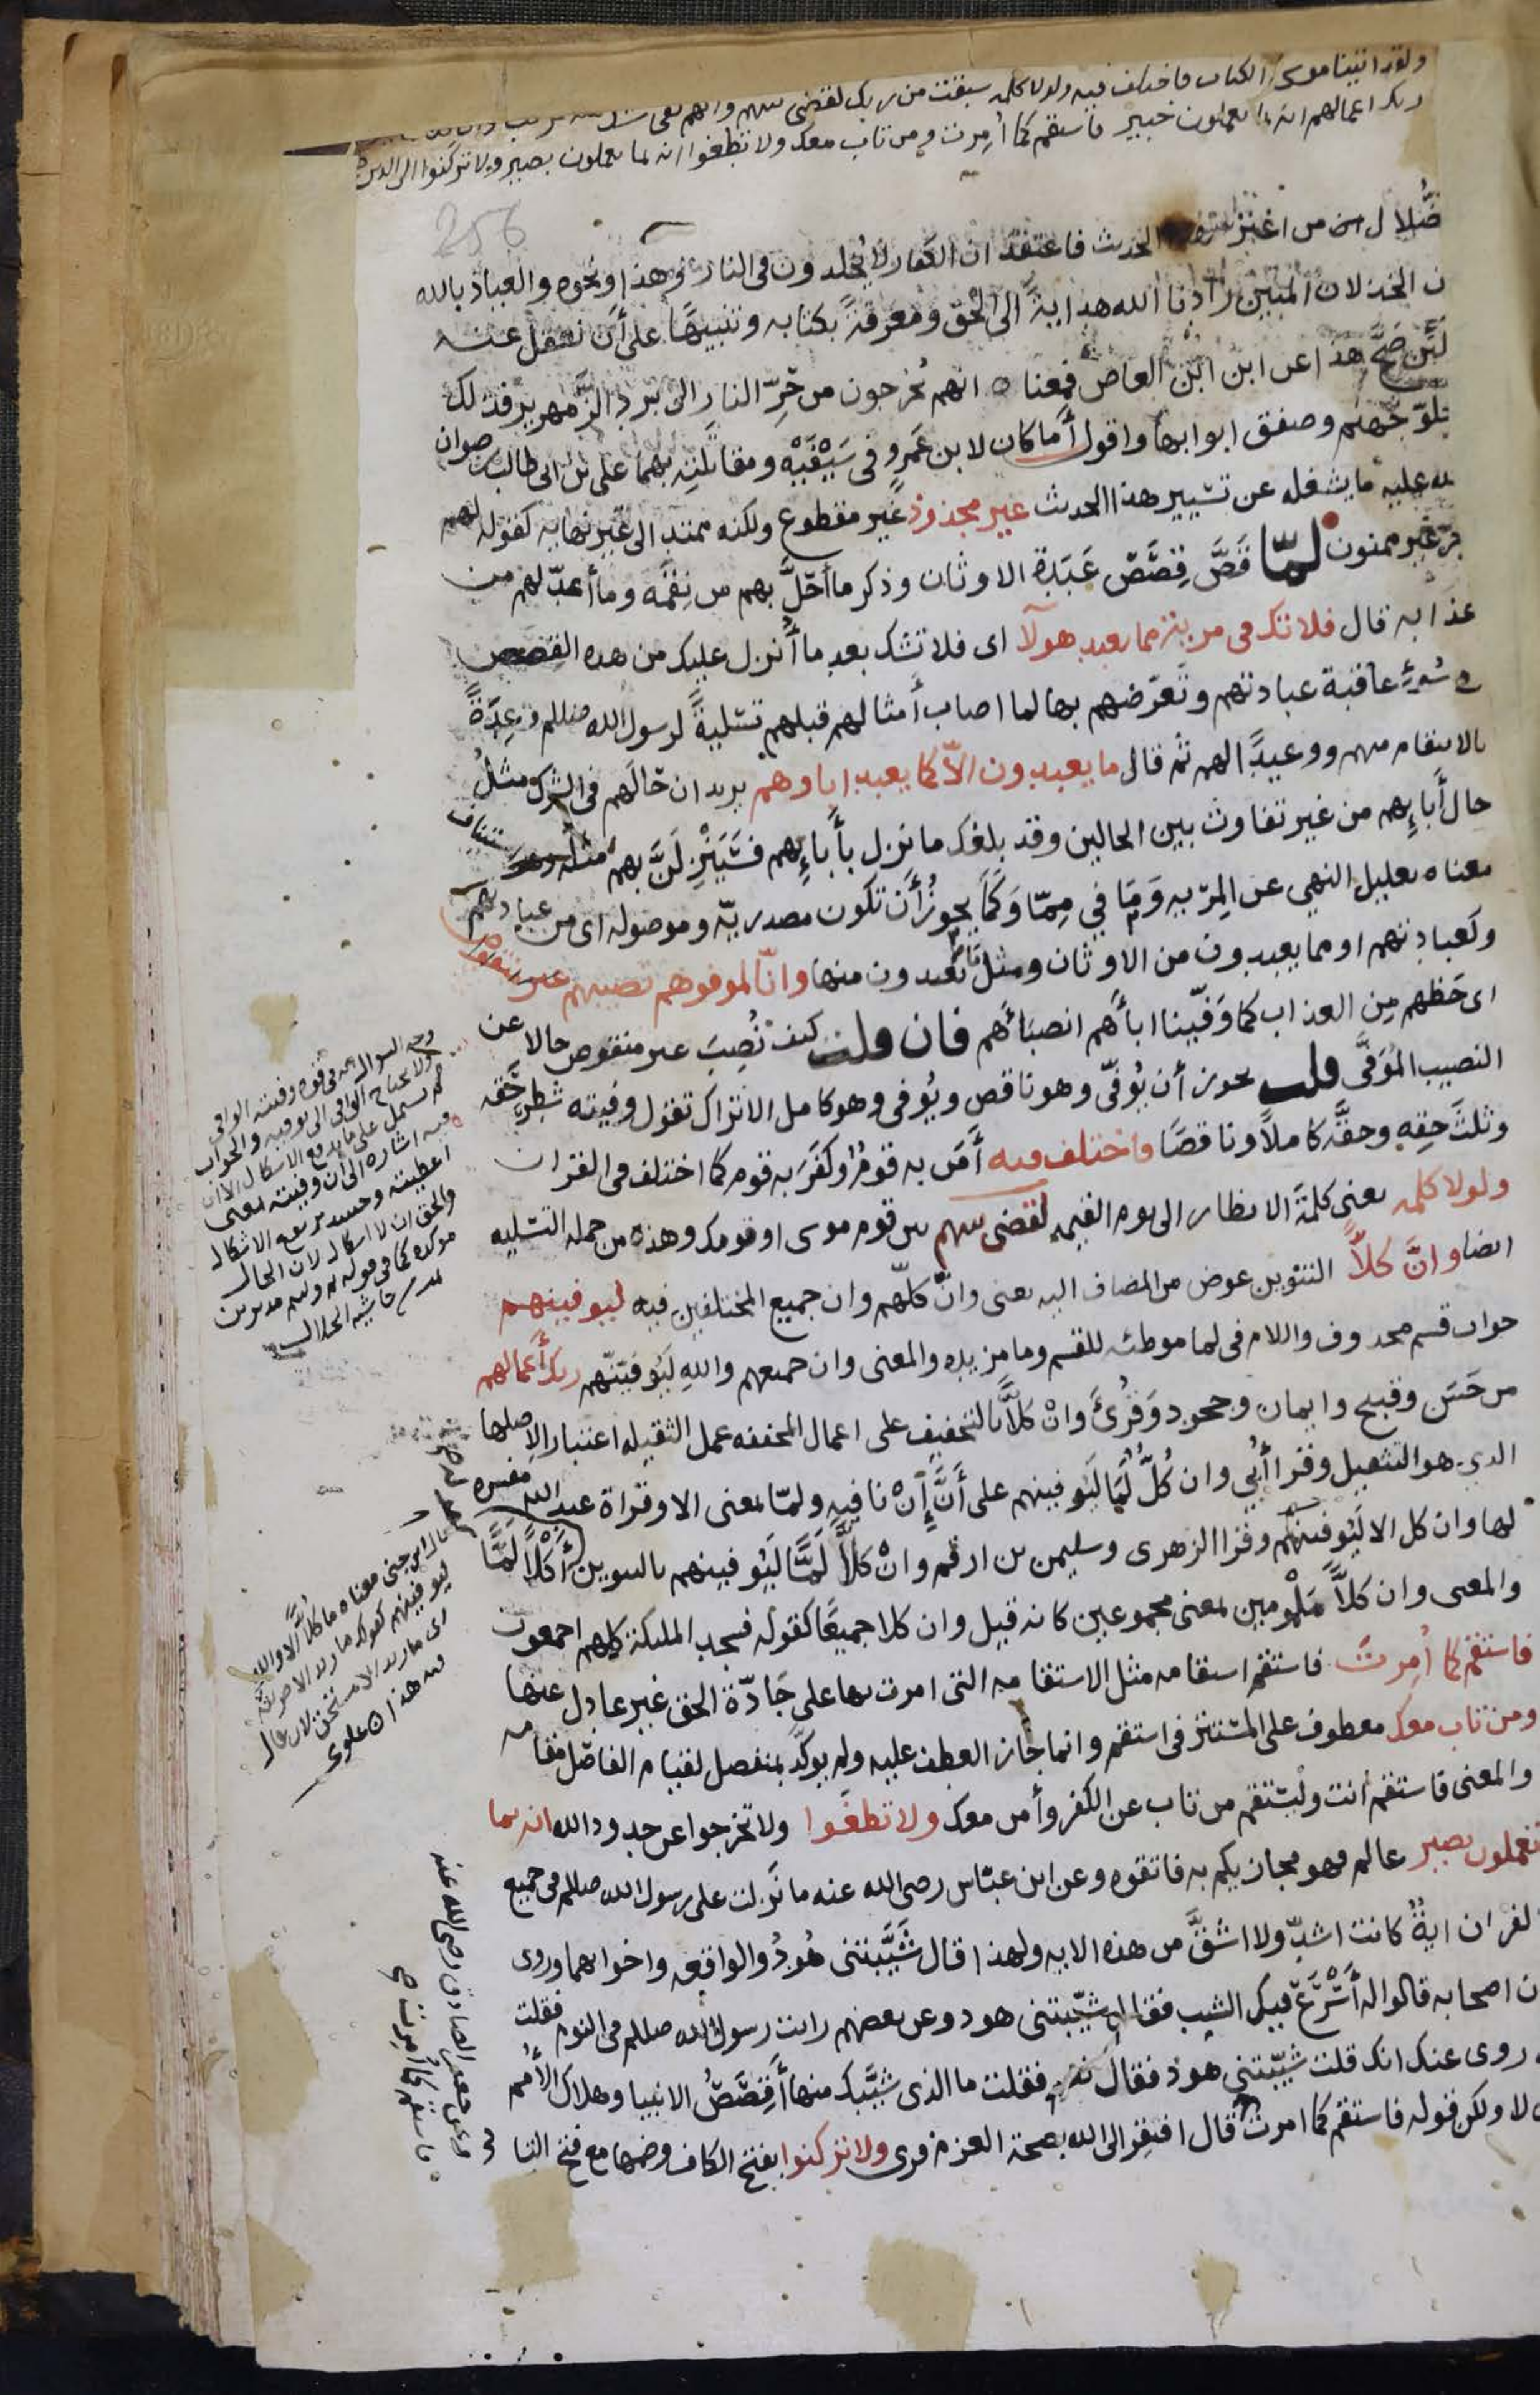 ولقد اتينا موسى الكتاب فاختلف فيه ولولا كلمه سبقت من ربك لقضى بينهم وانهم لفى
ربك اعمالهم انه بما يعملون خبير فاستقم كما أُمِرت ومن تاب معك ولا تطغوا انه بما تعملون بصير ولا تركنوا الى الذين
256
ضُّلال من اغتر الحديث فاعتقد ان الكفار لا يُخلدون فى النار وهذا ونحوه والعياذ بالله
ن الخذلان المبين زادنا الله هدايةً الى الحق ومعرفةً بكتابه وتنبيهًا على أن نعقل عنه
لئن صَحَّ هذا عن ابن ابن العاص فمعناه انهم يُخرجون من حَرِّ النار الى برد الزمهرير فذلك
خلوّ جهنم وصفق ابوابها واقول أما كان لابن عَمرٍو فى سَيْفَيْه ومقاتلته بهما على بن ابى طالب رضوان
لله عليه ما يشغله عن تسيير هذا الحديث غير مجذوذ غير مقطوع ولكنه ممتد الى غير نهايه كقوله لهم
جر غير ممنون لمّا قَصَّ قِصَصَ عَبَدة الاوثان وذكر ما أحَلَّ بهم من نِقَمه وما أعدّ لهم من
عذابه قال فلا تك فى مريه مما يعبد هولآ اى فلا تشك بعد ما أُنزل عليك من هذه القصص
فى سُوء عاقبة عبادتهم وتَعرّضهم بها لما اصاب أمثالهم قبلهم تسليةً لرسول الله صللم وعِدَةً
بالانتقام منهم ووعيدًا لهم ثم قال ما يعبدون الاّ كما يعبد اباوهم يريد ان حَالَهم فى الشرك مثلُ
حال أباءِهم من غير تفاوت بين الحالين وقد بلغك ما نزل بأباءِهم فسَيَنْزِلَنَّ بهم مثله وهو استيناف
معناه تعليل النهى عن المِريه وَمَا في مِمّا وَكَمَا يجوزُ أن تكون مصدريّه وموصوله اى من عبادتهم
وكعبادتهم او مما يعبدون من الاوثان ومثل ما يعبدون منها وانّا لموفوهم نصيبهم غير منقوص
اى حَظهم مِن العذاب كما وَفّينا اباءهم انصباءهم فان قلت كيف نُصِبَ غير منقوص حالا عن
النصيب المُوَفَّى قلت يجوز أن يُوفّى وهو ناقص ويُوفى وهو كامل الا تراك تقول وفيته شَطر حَقه
وثلثَ حقِهِ وحقَّه كاملاً وناقصًا فاختلف فيه أمَن به قومٌ وكفَرَ به قوم كما اختلف فى القران
ولولا كلمه يعنى كلمةَ الانظار الى يوم القيمه لقضى بينهم بين قوم موسى او قومك وهذه من جمله التسليه
ايضا وانَّ كلاًّ التنوين عوض من المضاف اليه يعنى وانّ كلّهم وان جميع المختلفين فيه ليوفينهم
جواب قسم محذوف واللام فى لما موطئه للقسم وما مزيده والمعنى وان جميعهم واللهِ لَيُوفيَنَّهم ربك أعمالهم
من حَسَن وقبيح وايمان وجحود وقُرئَ وانْ كلاًّ بالتخفيف على اعمال المخففه عمل الثقيله اعتبارا لاصلها
الذى هو التثقيل وقرا أُبَيّ وان كُلٌّ لَمَّا لَيُوفينهم على أنَّ إنْ نافيه ولمّا بمعنى الا وقراة عبد الله مفسره
لها وان كل الا ليُوفينهم وقرا الزهرى وسليمن بن ارقم وانْ كلاًّ لَمًّا لَيُوفينهم بالتنوين أَكْلاً لَمًّا
والمعنى وان كلاًّ مَلْمومين بمعنى مجموعين كانه قيل وان كلا جميعًا كقوله فسجد الملئكة كلهم اجمعون
فاستقم كما أُمِرتَ فاستقم استقامه مثل الاستقامه التى امرت بها على جَادّة الحق غير عادل عنها
ومن تاب معك معطوف على المستتر فى استقم وانما جاز العطف عليه ولم يوكّد بمنفصل لقيام الفاصل مقامه
والمعنى فاستقم أنت وليَستقم من تاب عن الكفر وأمن معك ولا تطغَوا ولا تخرجوا عن حدود الله انه بما
تعملون بصير عالم فهو مجازيكم به فاتقوه وعن ابن عبّاس رضى الله عنه ما نَزلت على رسول الله صللم فى جميع
لقران ايةٌ كانت اشدّ ولا اشقَّ من هذه الايه ولهذا قال شَيَّبَتنى هُودٌ والواقعه واخواتهما وروى
ن اصحابه قالوا له أَسْرَعَ فيك الشيب فقال شيّبتنى هود وعن بعضهم رايت رسول الله صللم فى النوم فقلت
روى عنك انك قلت شيّبتنى هود فقال نعم فقلت ما الذى شيَّبك منها أقَصَصُ الانبيا وهلاك الأمم
لا ولكن قوله فاستقم كما امرت قال افتقِر الى الله بصحة العزم قرى ولا تركنوا بفتح الكاف وضمها مع فتح التا
وجه السوال
ولا يحتاج
فيه اشاره الى ان وفيته بمعنى
اعطيته وحينئذ يرتفع الاشكال
والحق ان لا اشكال لان الحال
موكده كما فى قوله ثم وليتم مدبرين
قال ابن جنى معناه ما كلاًّ الا والله
ليوفينهم كقولك ما زيد الا لاضربنه
وعن جعفر الصادق رضى الله عنه
فاستقم كما أُمِرت